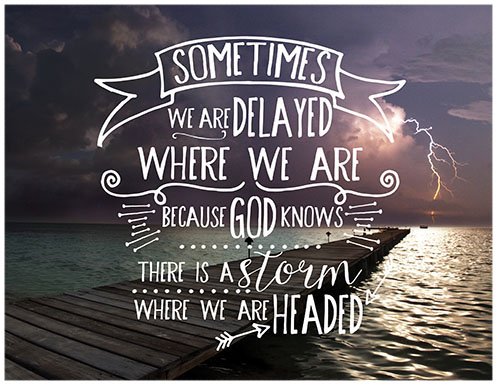 SOMETIMES
WE ARE DELAYED
WHERE WE ARE
BECAUSE GOD KNOWS
THERE IS A storm
WHERE WE ARE HEADED